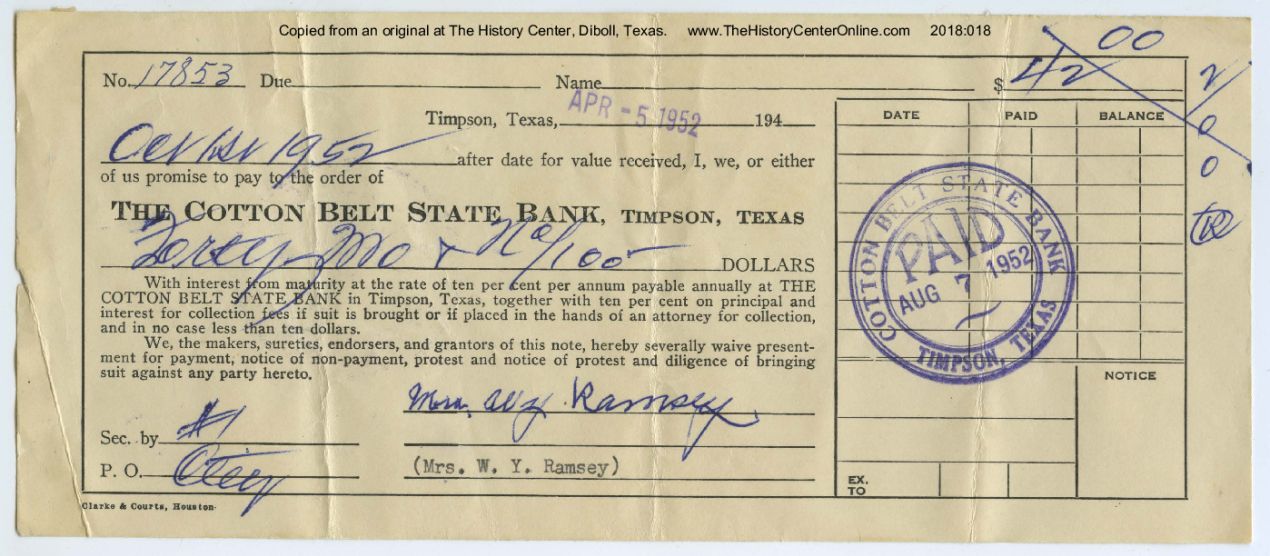 Copied from an original at The History Center, Diboll, Texas. www.TheHistoryCenterOnline.com 2018:018
No. 17853 Due Name $ 42 00
Timpson, Texas, APR - 5 1952 194
Oct 1st 1952 after date for value received, I, we, or either
of us promise to pay to the order of
THE COTTON BELT STATE BANK, TIMPSON, TEXAS
Forty Two & No/100 DOLLARS
With interest from maturity at the rate of ten per cent per annum payable annually at THE
COTTON BELT STATE BANK in Timpson, Texas, together with ten per cent on principal and
interest for collection fees if suit is brought or if placed in the hands of an attorney for collection,
and in no case less than ten dollars.
We, the makers, sureties, endorsers, and grantors of this note, hereby severally waive present-
ment for payment, notice of non-payment, protest and notice of protest and diligence of bringing
suit against any party hereto.
Mrs. W Y Ramsey
Sec. by #1
(Mrs. W. Y. Ramsey)
P. O.
Clarke & Courts, Houston
DATE PAID BALANCE
COTTON BELT STATE BANK
PAID
AUG 7 1952
TIMPSON, TEXAS
NOTICE
EX.
TO
2
0
0
R